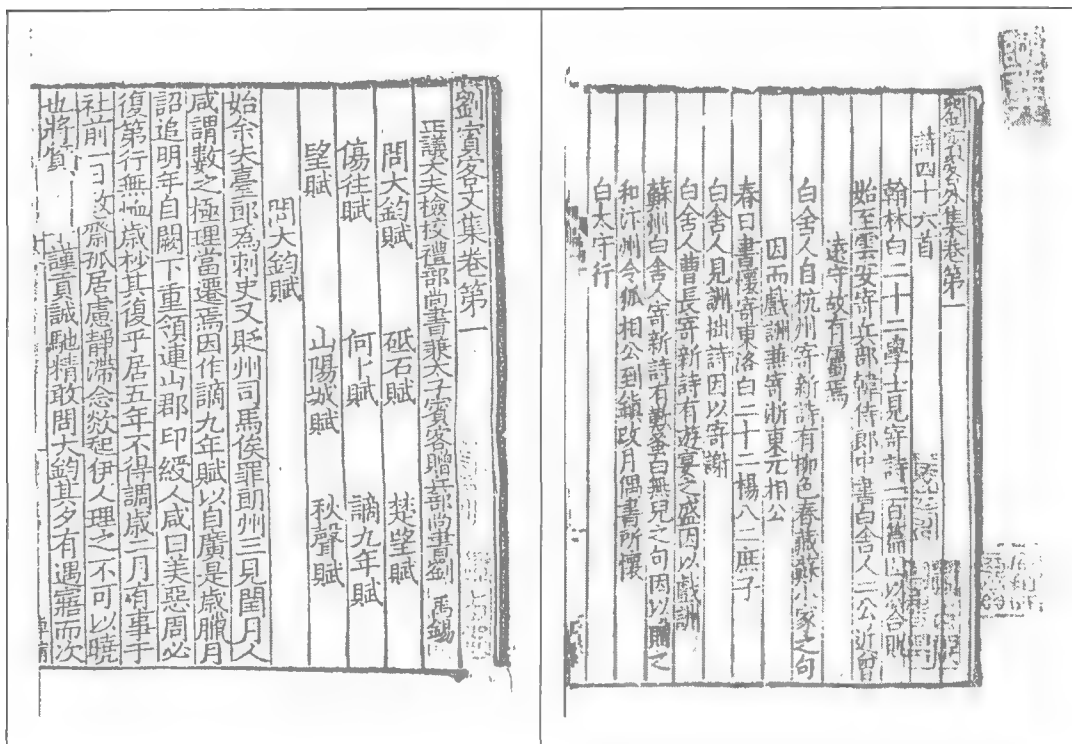 劉賓客外集卷第一
詩四十六首
翰林白二十二學士見寄詩一百篇因以答貺
始至雲安寄兵部韓侍郎中書白舍人二公近曾
遠守故有屬焉
白舍人自杭州寄新詩有柳色春藏蘇小家之句
因而戲詶兼寄浙東元相公
春日書懷寄東洛白二十二楊八二庶子
白舍人見詶拙詩因以寄謝
白舍人曹長寄新詩有遊宴之盛因以戲詶
蘇州白舍人寄新詩有歎蚤白無兒之句因以贈之
和汴州令狐相公到鎮改月偶書所懷
白太守行
劉賓客文集卷第一
正議大夫檢校禮部尚書兼太子賓客贈兵部尚書劉 禹錫
問大鈞賦 砥石賦 楚望賦
傷往賦 何卜賦 謫九年賦
望賦 山陽城賦 秋聲賦
問大鈞賦
始余失臺郎為刺史又貶州司馬俟罪朗州三見閏月人
咸謂數之極理當遷焉因作謫九年賦以自廣是歲臘月
詔追明年自闕下重領連山郡印綬人咸曰美惡周必
復第行無恤歲杪其復乎居五年不得調歲二月有事于
社前一日致齋孤居慮靜滯念欻起伊人理之不可以曉
也將質 謹貢誠馳精敢問大鈞其夕有遇寤而次